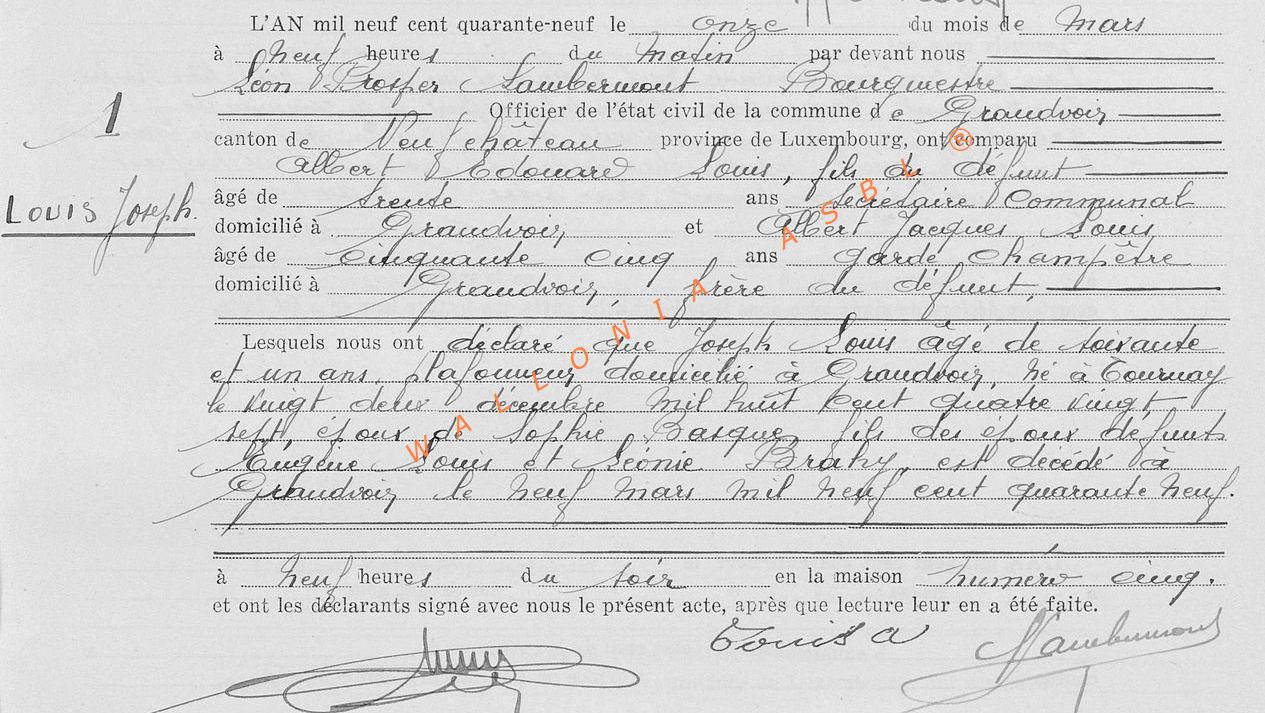 L'AN mil neuf cent quarante-neuf le onze du mois de Mars
à neuf heures du matin par devant nous
Léon Prosper Lambermont Bourgmestre
1
Officier de l'état civil de la commune de Grandvoir
canton de Neufchâteau province de Luxembourg, ont comparu
Albert Edouard Louis, fils du défunt
âgé de trente ans Secrétaire Communal
Louis Joseph.
domicilié à Grandvoir et Albert Jacques Louis
âgé de cinquante cinq ans garde champêtre
domicilié à Grandvoir, frère du défunt,
Lesquels nous ont déclaré que Joseph Louis âgé de soixante
et un ans, plafonneur domicilié à Grandvoir, né à Tournay
le vingt deux décembre mil huit cent quatre vingt
sept, époux de Sophie Basque, fils des époux défunts
Eugène Louis et Léonie Parahy, est décédé à
Grandvoir le neuf mars mil neuf cent quarante neuf.
à neuf heures du soir en la maison numéro cinq.
et ont les déclarants signé avec nous le présent acte, après que lecture leur en a été faite.
Louis a Lambermont
WALLONIA ASBL ®